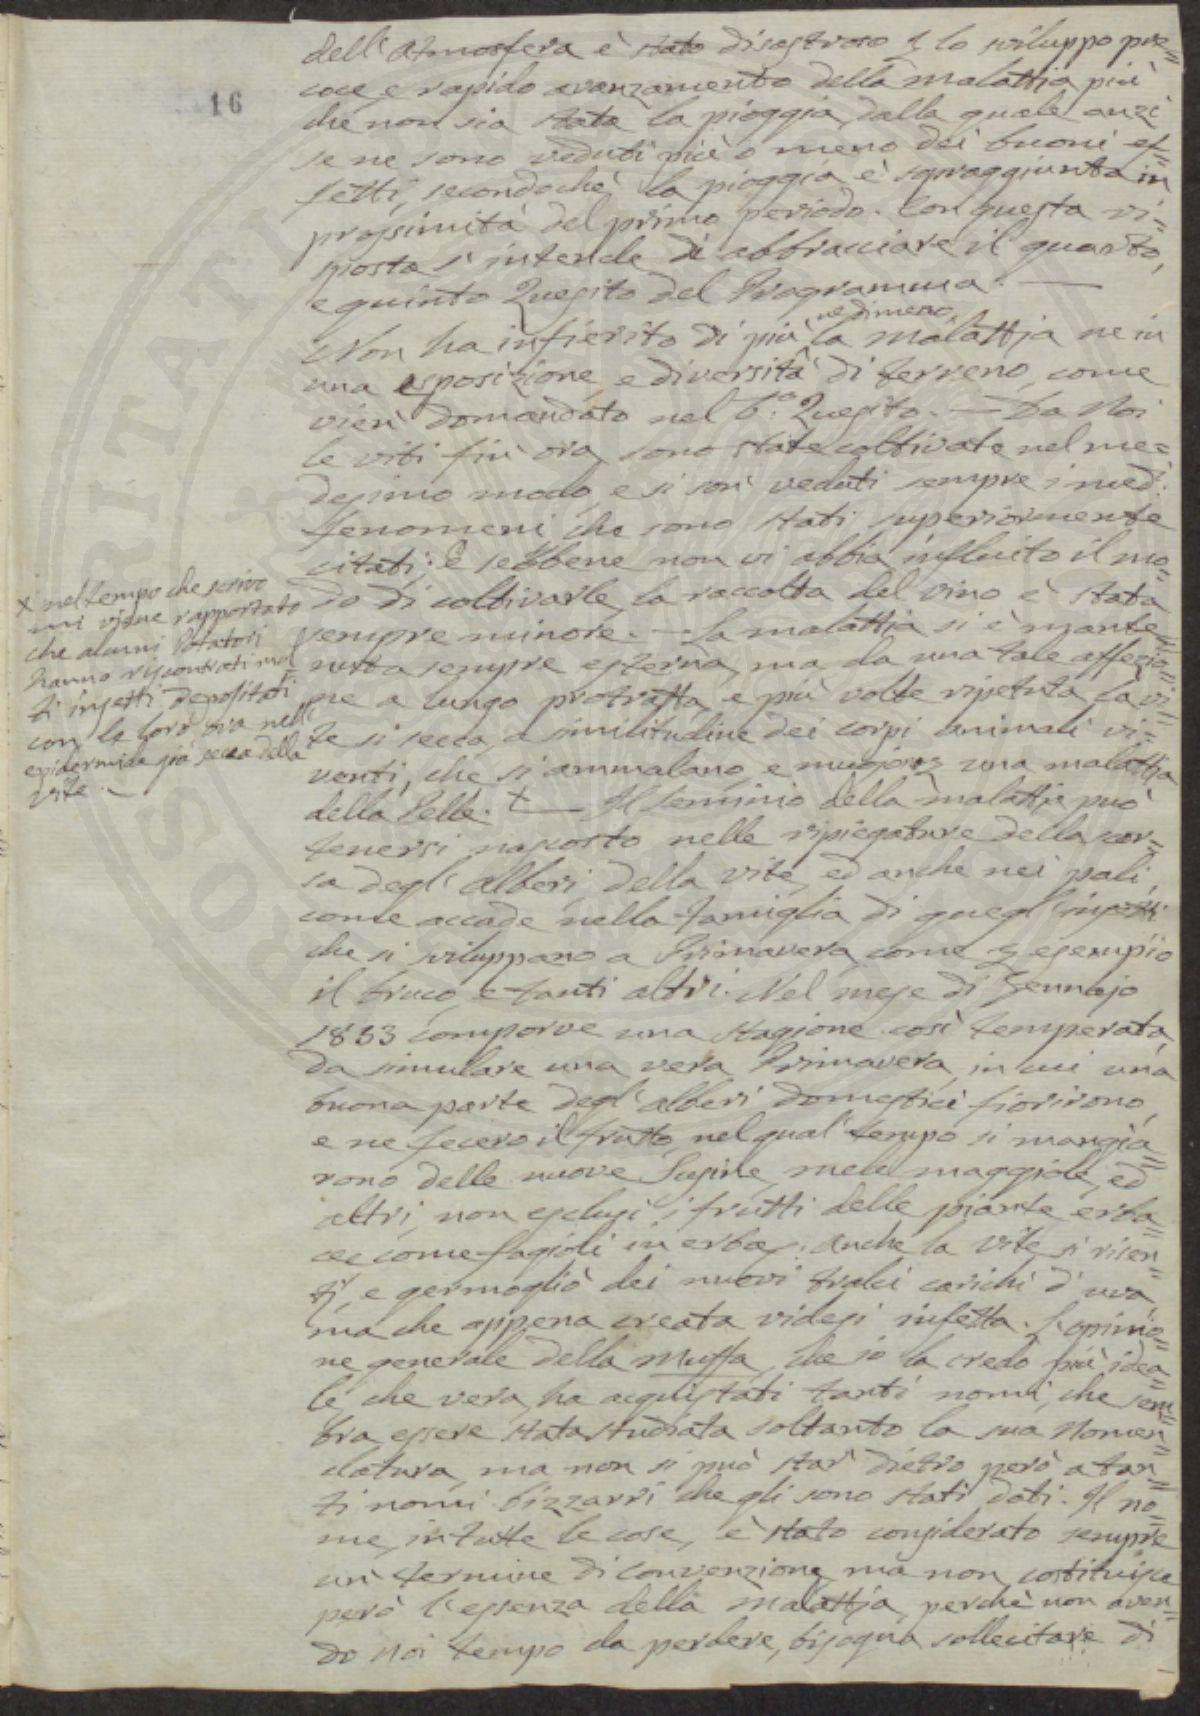 16
dell'Atmosfera è stato disastroso p lo sviluppo pre=
coce, e rapido avanzamento della malattia più
che non sia stata la pioggia, dalla quale anzi
se ne sono veduti più o meno dei buoni ef=
fetti, secondochè la pioggia è sopraggiunta in
prossimità del primo periodo. Con questa ri=
sposta s'intende di abbracciare il quarto,
e quinto Quesito del Programma. —
Non ha infierito di più nedimeno, la malattia ne in
una esposizione, e diversità di terreno, come
vien domandato nel 6.° Quesito. — Da Noi
le viti fin ora sono state coltivate nel me=
desimo modo, e si son veduti sempre i med.
fenomeni che sono stati superiormente
citati; E sebbene non vi abbia influito il mo=
do di coltivarle, la raccolta del vino è stata
sempre minore. — La malattia si è mante=
nuta sempre esterna, ma da una tale affezio=
ne a lungo protratta, e più volte ripetuta, la vi=
te si secca, a similitudine dei corpi animali vi=
venti, che si ammalano, e muojono p una malattia
della Pelle. + — Il seminio della malattia può
tenersi nascosto nelle ripiegature della scor=
sa degl'alberi, della vite, ed anche nei pali,
come accade nella famiglia di quegl'insetti
che si sviluppano a Primavera, come p esempio
il bruco, e tanti altri. Nel mese di Gennajo
1853 comparve una stagione così temperata,
da simulare una vera Primavera, in cui una
buona parte degl'alberi domestici fiorirono,
e ne fecero il frutto, nel qual tempo si mangia=
rono delle nuove Susine, mele maggiole, ed
altri, non esclusi i frutti delle piante erba=
cee come fagioli in erba. Anche la Vite si risen=
tì, e germogliò dei nuovi tralci carichi d'uva,
ma che appena creata videsi infetta. L'opinio=
ne generale della Muffa, che io la credo più idea=
le, che vera, ha acquistati tanti nomi, che sem=
bra essere stata studiata soltanto la sua Nomen=
clatura, ma non si può star dietro però a tan=
ti nomi bizzarri che gli sono stati dati. Il no=
me, in tutte le cose, è stato considerato sempre
un termine di convenzione, ma non costituisce
però l'essenza della malattia, perchè non aven=
do noi tempo da perdere, bisogna sollecitare di
x nel tempo che scrivo
mi viene rapportato
che alcuni Potatori
hanno riscontrati mol=
ti insetti depositati
con le loro ova nell'
epidermide già secca della
vite. —